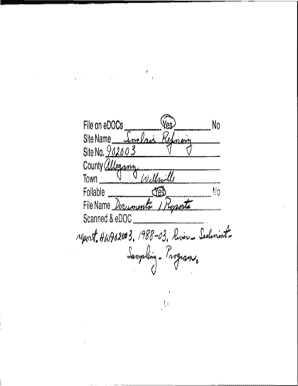 File on eDOCs Yes No
Site Name Sinclair Refining
Site No. 902003
County Allegany
Town Wellsville
Foilable Yes No
File Name Documents / Reports
Scanned & eDOC
report.HW902003.1988-03.River-Sediment-
Sampling-Program.